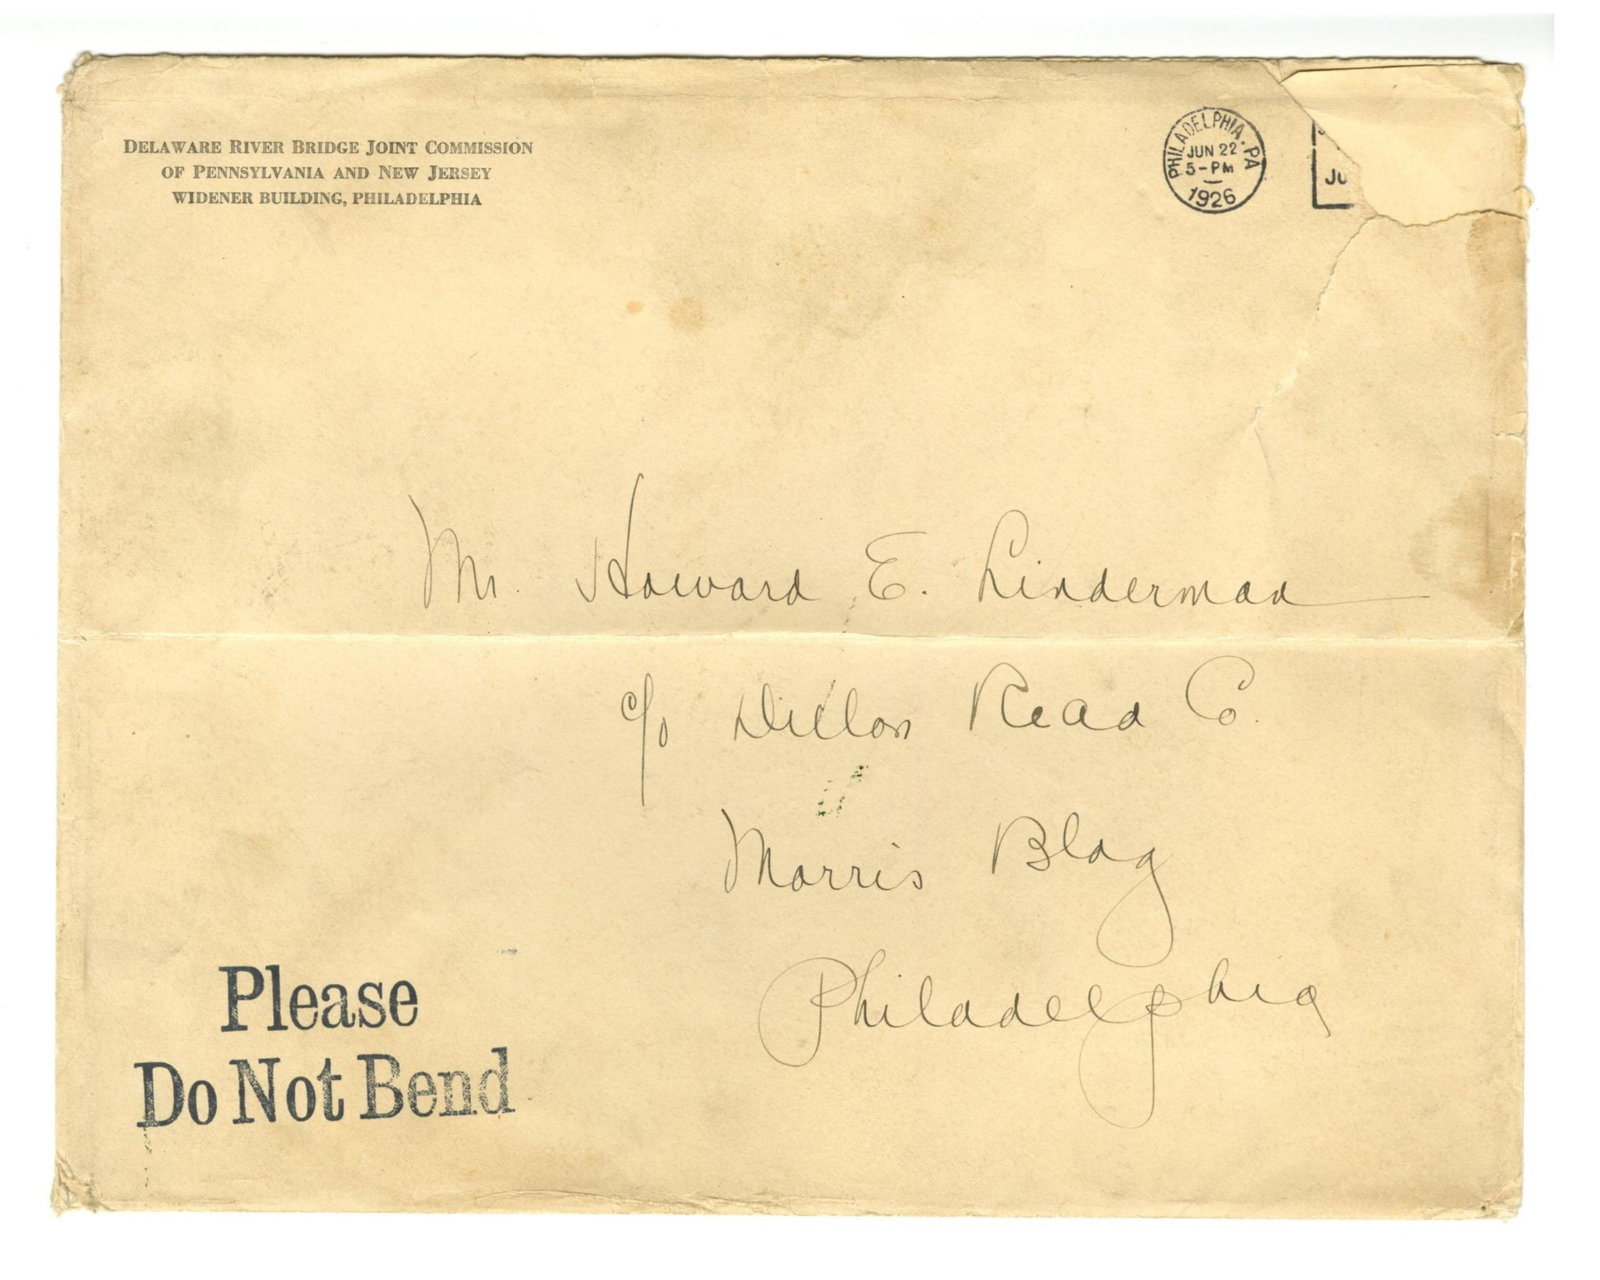 DELAWARE RIVER BRIDGE JOINT COMMISSION
OF PENNSYLVANIA AND NEW JERSEY
WIDENER BUILDING, PHILADELPHIA
PHILADELPHIA, PA
JUN 22
5-PM
1926
Mr. Howard E. Linderman
c/o Dillon Read Co.
Morris Bldg
Philadelphia
Please
Do Not Bend